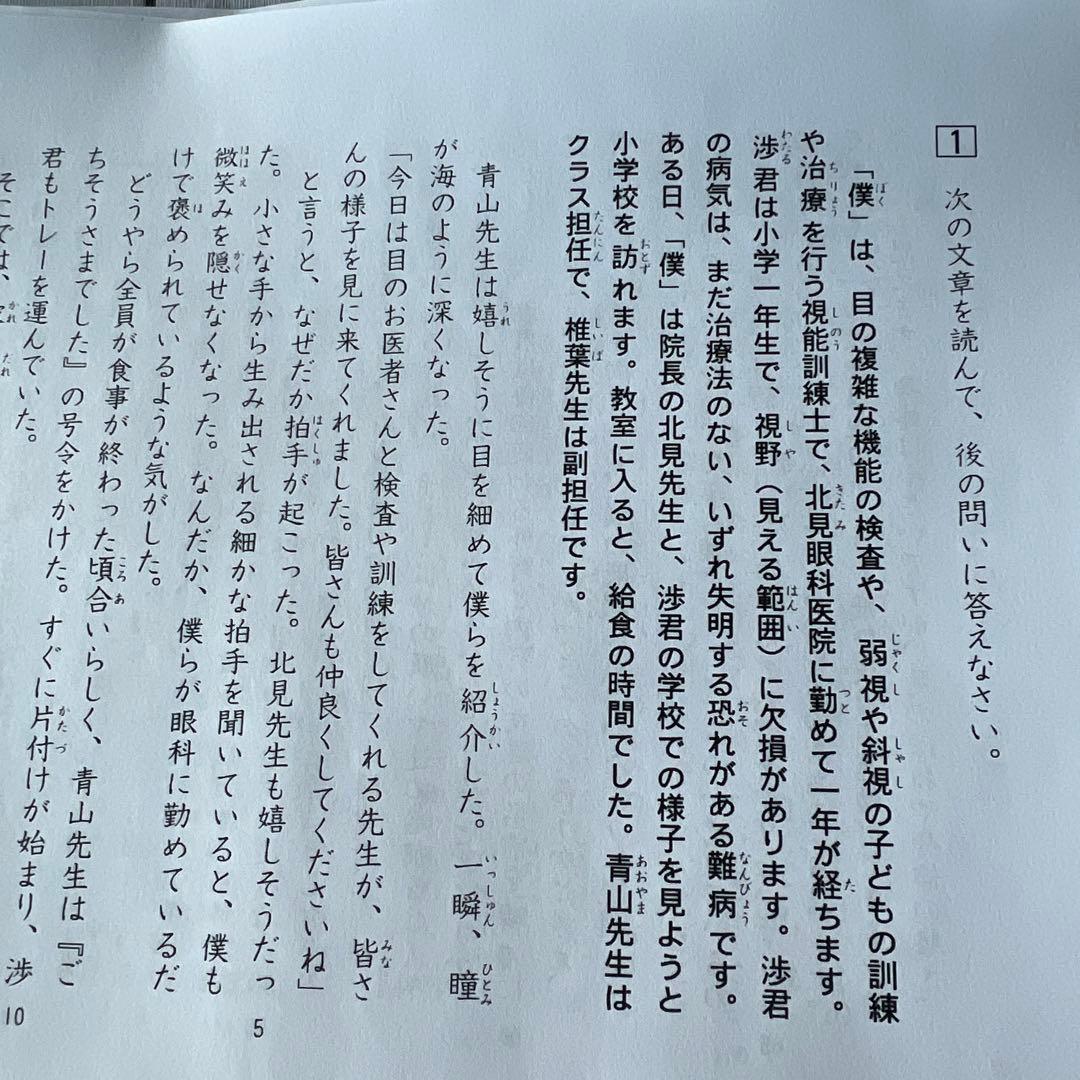 1 次の文章を読んで、後の問いに答えなさい。
「僕」は、目の複雑な機能の検査や、弱視や斜視の子どもの訓練
や治療を行う視能訓練士で、北見眼科医院に勤めて一年が経ちます。
渉君は小学一年生で、視野（見える範囲）に欠損があります。渉君
の病気は、まだ治療法のない、いずれ失明する恐れがある難病です。
ある日、「僕」は院長の北見先生と、渉君の学校での様子を見ようと
小学校を訪れます。教室に入ると、給食の時間でした。青山先生は
クラス担任で、椎葉先生は副担任です。
青山先生は嬉しそうに目を細めて僕らを紹介した。一瞬、瞳
が海のように深くなった。
「今日は目のお医者さんと検査や訓練をしてくれる先生が、皆さ
んの様子を見に来てくれました。皆さんも仲良くしてくださいね」
と言うと、なぜだか拍手が起こった。北見先生も嬉しそうだっ
た。小さな手から生み出される細かな拍手を聞いていると、僕も
微笑みを隠せなくなった。なんだか、僕らが眼科に勤めているだ
けで褒められているような気がした。
どうやら全員が食事が終わった頃合いらしく、青山先生は『ご
ちそうさまでした』の号令をかけた。すぐに片付けが始まり、渉
君もトレーを運んでいた。
そこでは、
5
10